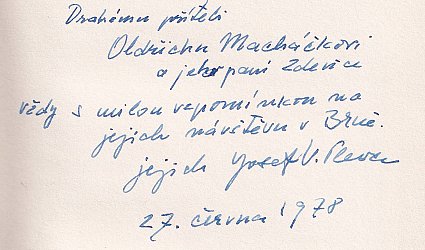 Drahému příteli
Oldřichu Macháčkovi
a jeho paní Zdence
vždy s milou vzpomínkou na
jejich návštěvu v Brně.
jejich Josef V. Pleva
27. června 1978